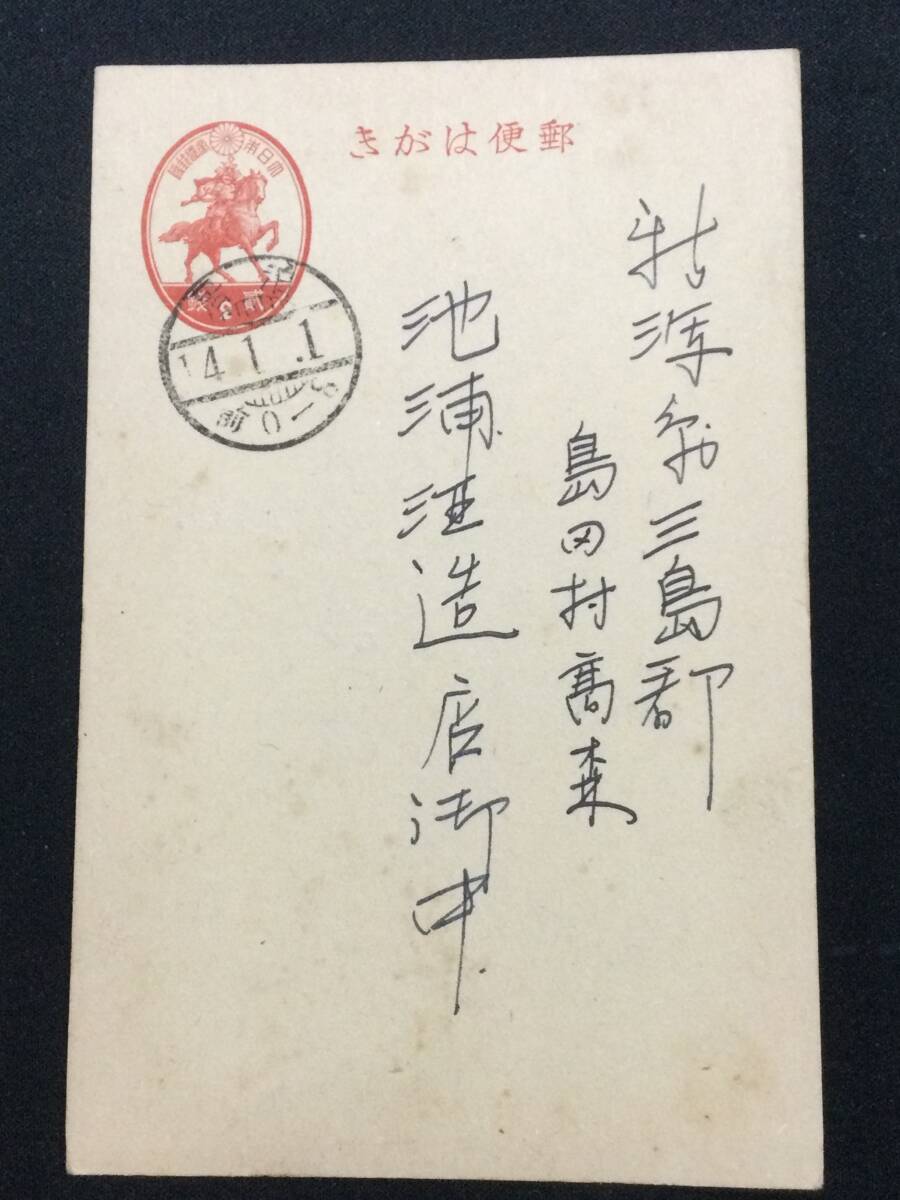 郵便はがき
新潟縣三島郡
島田村高森
池浦酒造店御中
大日本帝國郵便
貳錢
14.1.1
前0-8